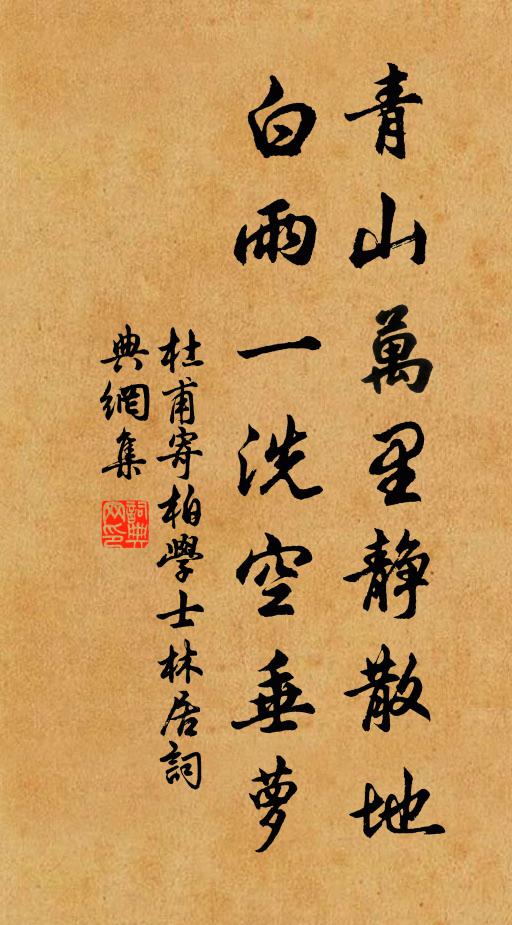 青山萬里靜散地
白雨一洗空垂夢
杜甫寄柏學士林居詞
典網集
詞典
网印